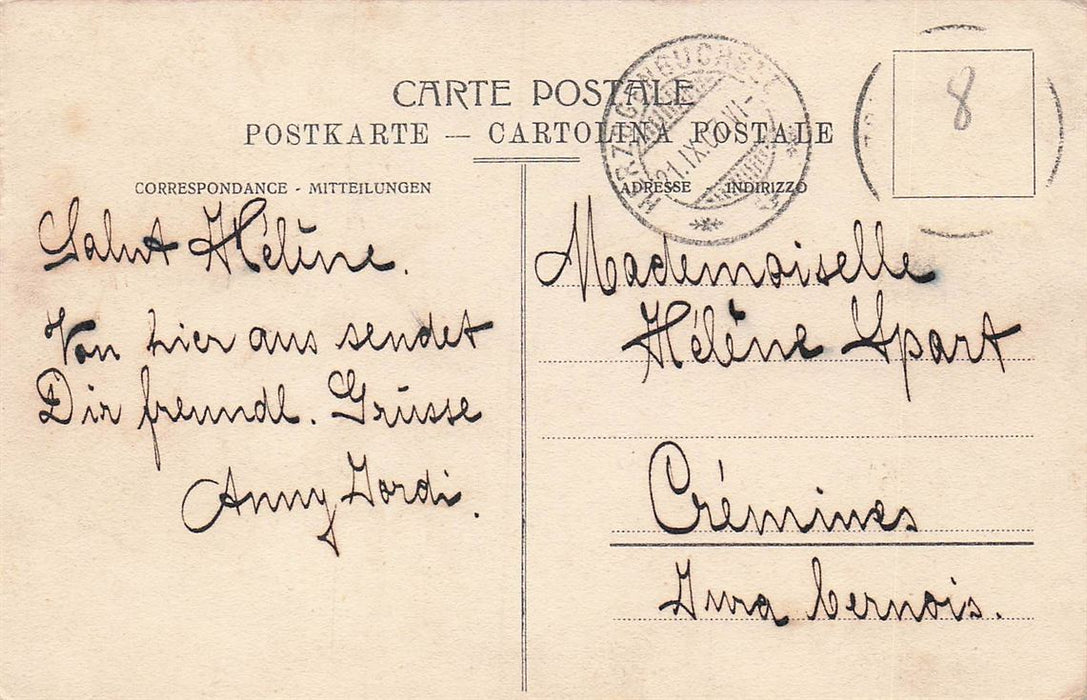 CARTE POSTALE
POSTKARTE — CARTOLINA POSTALE
CORRESPONDANCE - MITTEILUNGEN
ADRESSE INDIRIZZO
HERZOGENBUCHSEE
21.IX. VI-
8
Salut Hélène.
Von hier aus sendet
Dir freundl. Grüsse
Anny Jordi.
Mademoiselle
Hélène Spart
Crémines
Jura bernois.